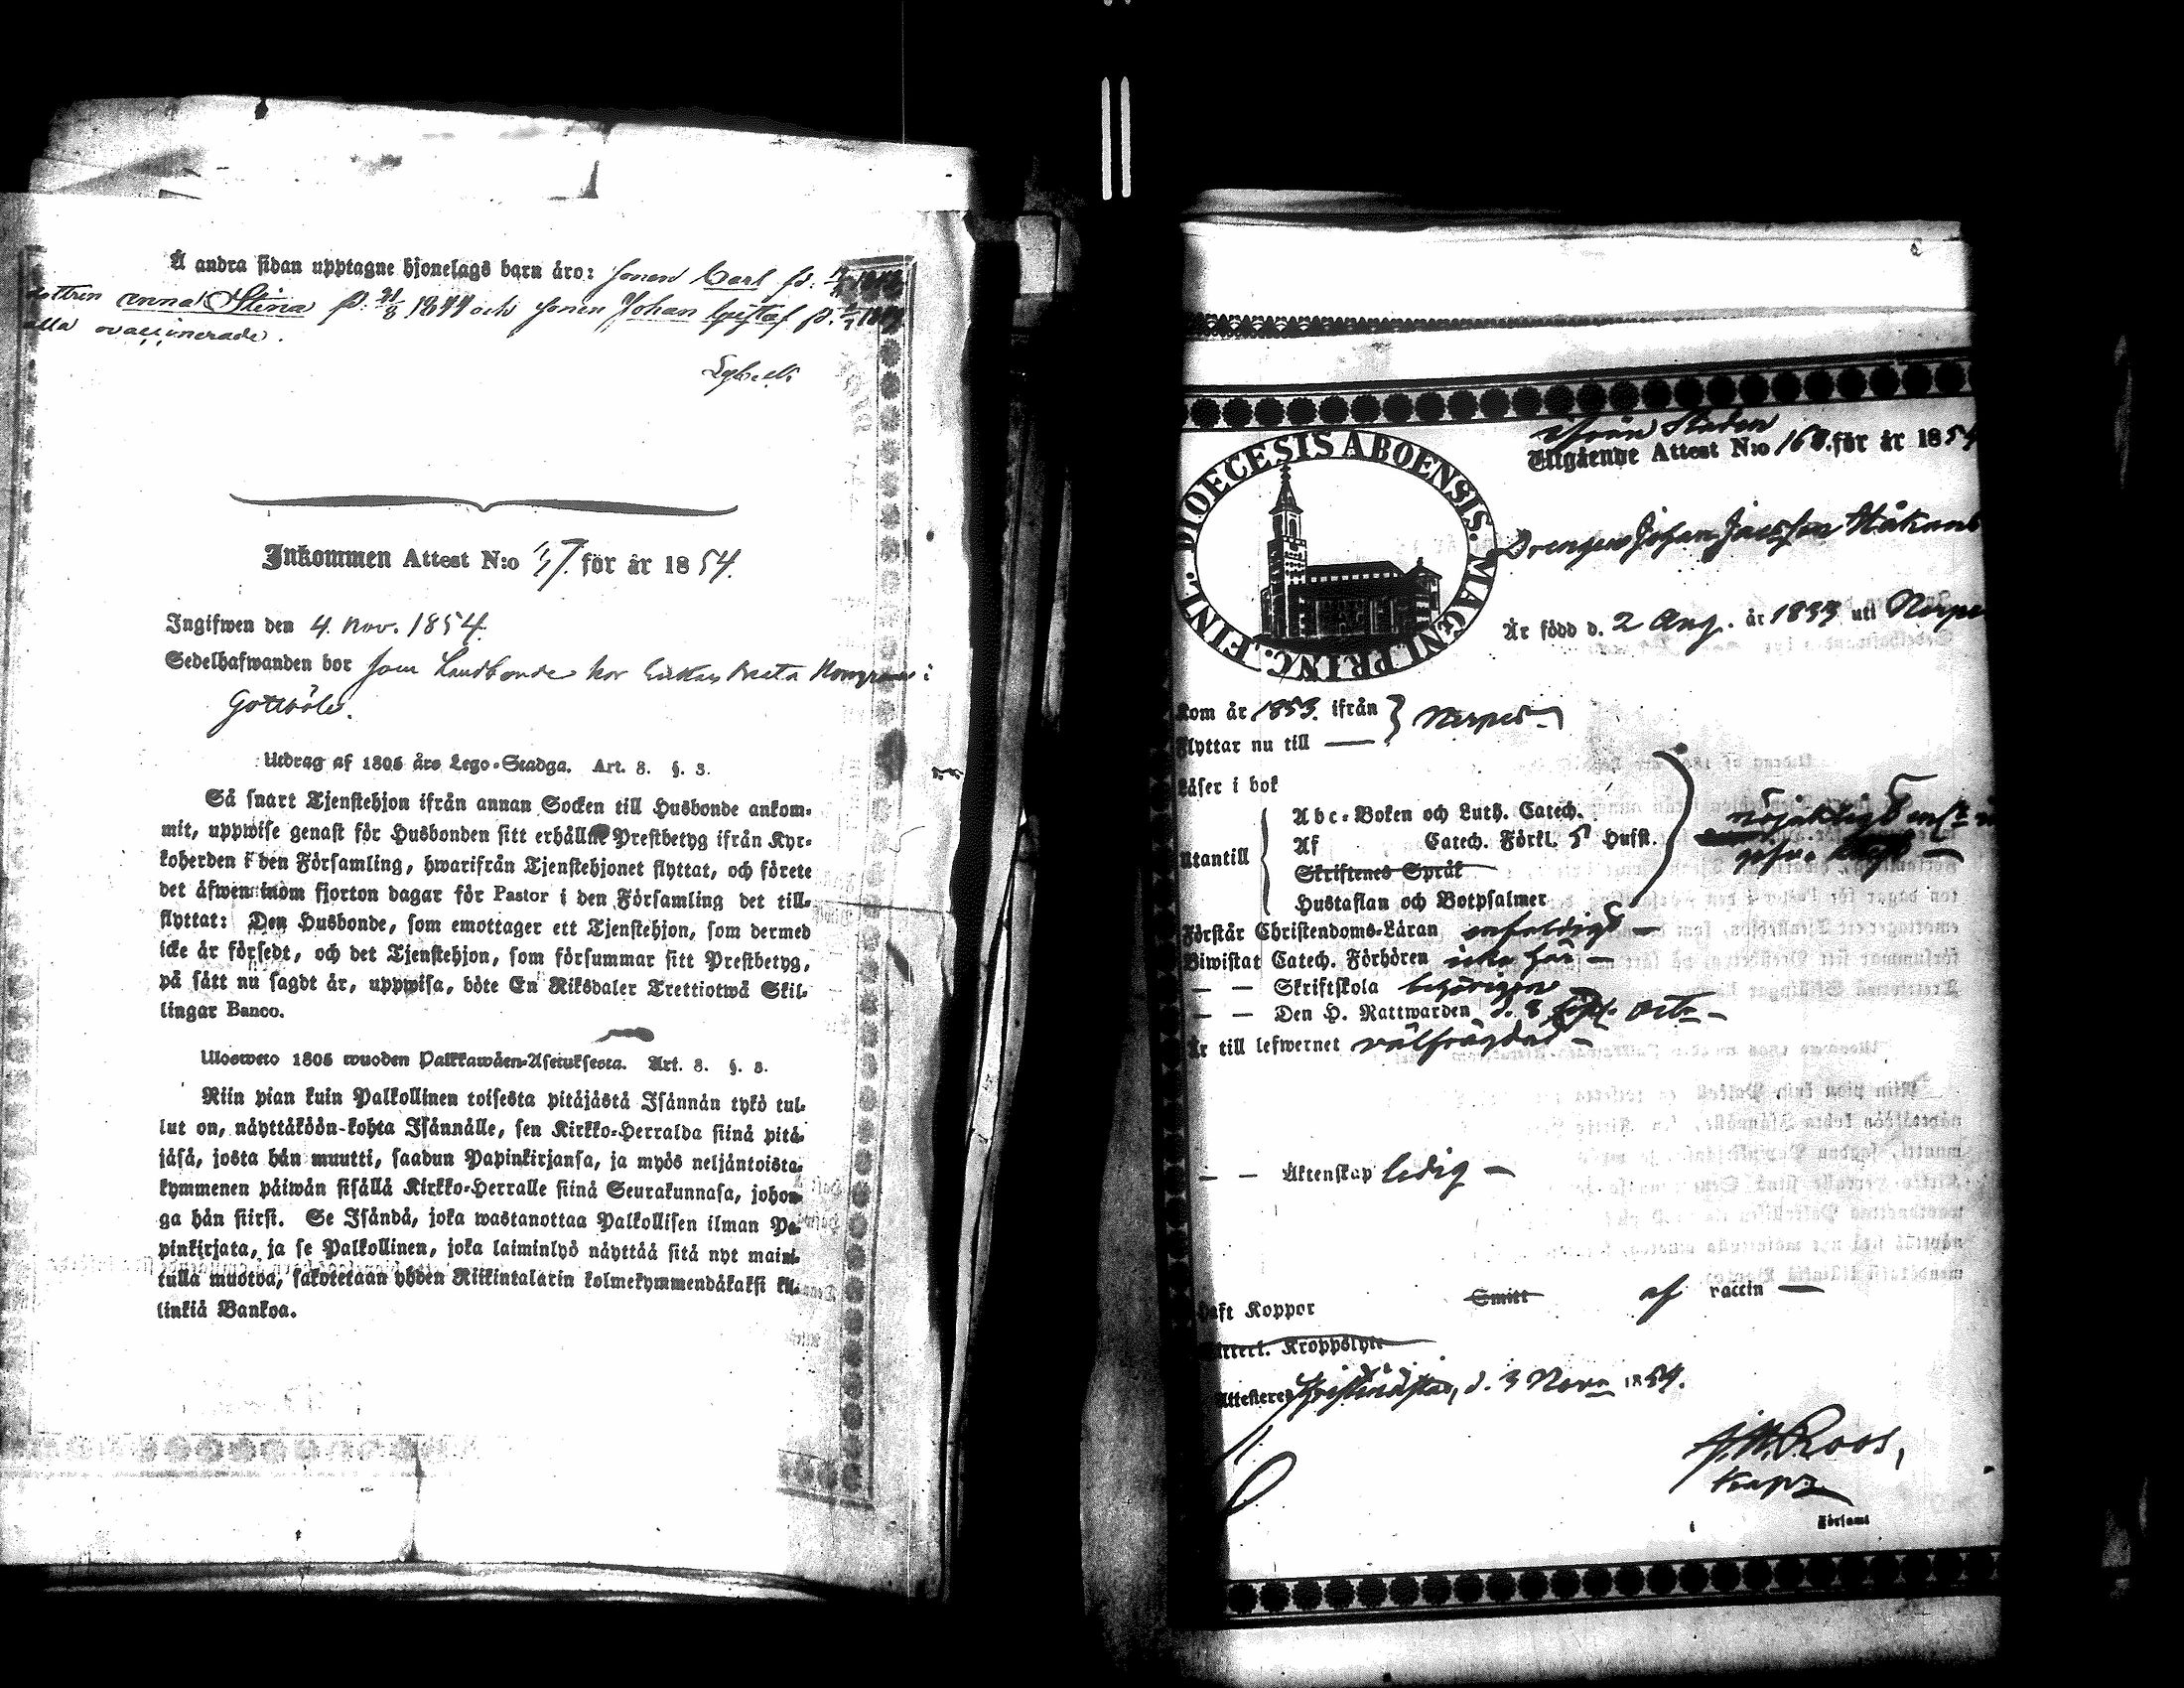 Å andra sidan upptagne hjonelags barn äro: sonen Carl fd:
dottren Anna Stina fd. 21/8 1844 och sonen Johan Gustaf fd.
alla ovaccinerade.
Inkommen Attest N:o 17. för år 1854.
Ingifwen den 4. Nov. 1854.
Sedelhafwanden bor som Landbonde hos Enkan Beata i
Gottböle.
Utdrag af 1805 års Lego-Stadga. Art. 8. §. 3.
Så snart Tjenstehjon ifrån annan Socken till Husbonde ankom-
mit, uppwise genast för Husbonden sitt erhållne Prestbetyg ifrån Kyr-
koherden i den Församling, hwarifrån Tjenstehjonet flyttat, och förete
det äfwen inom fjorton dagar för Pastor i den Församling det till-
flyttat: Den Husbonde, som emottager ett Tjenstehjon, som dermed
icke är försedt, och det Tjenstehjon, som försummar sitt Prestbetyg,
på sätt nu sagdt är, uppwisa, böte En Riksdaler Trettiotwå Skil-
lingar Banco.
Ulosweto 1805 wuoden Palkkawäen-Asetuksesta. Art. 8. §. 3.
Niin pian kuin Palkollinen toisesta pitäjästä Isännän tykö tul-
lut on, näyttäköön kohta Isännälle, sen Kirkko-Herralda siinä pitä-
jäsä, josta hän muutti, saadun Papinkirjansa, ja myös neljäntoista-
kymmenen päiwän sisällä Kirkko-Herralle siinä Seurakunnasa, johon-
ga hän siirsi. Se Isändä, joka wastanottaa Palkollisen ilman Pa-
pinkirjata, ja se Palkollinen, joka laiminlyö näyttää sitä nyt maini-
tulla muotoa, sakotetaan yhden Riikintalarin kolmekymmendäkaksi kil-
linkiä Bankoa.
DIOECESIS ABOENSIS. MAGNI PRINC. FINL.
ifrån Staden
Utgående Attest N:o för år 1854
Drengen Johan Jacobson Håkans
Är född d. 2 Aug. år 1833 uti Nerpes
Kom år 1853. ifrån } Nerpes
Flyttar nu till
Läser i bok
Utantill
Abc-Boken och Luth. Catech.
Af Catech. Förkl. 5 Hufst.
Skriftenes Språk
Hustaflan och Botpsalmer
Förstår Christendoms-Läran enfaldigt —
Biwistat Catech. Förhören icke här —
— — Skriftskola behörigen
— — Den H. Nattwarden d. 8 Oct. —
Är till lefwernet välfrägdad —
— — Äktenskap ledig —
Haft Koppor Smitt af vaccin —
Kroppslyte
Attesterer Christinestad, d. 3 Nov. 1854.
Roos,
Kapz
Församl